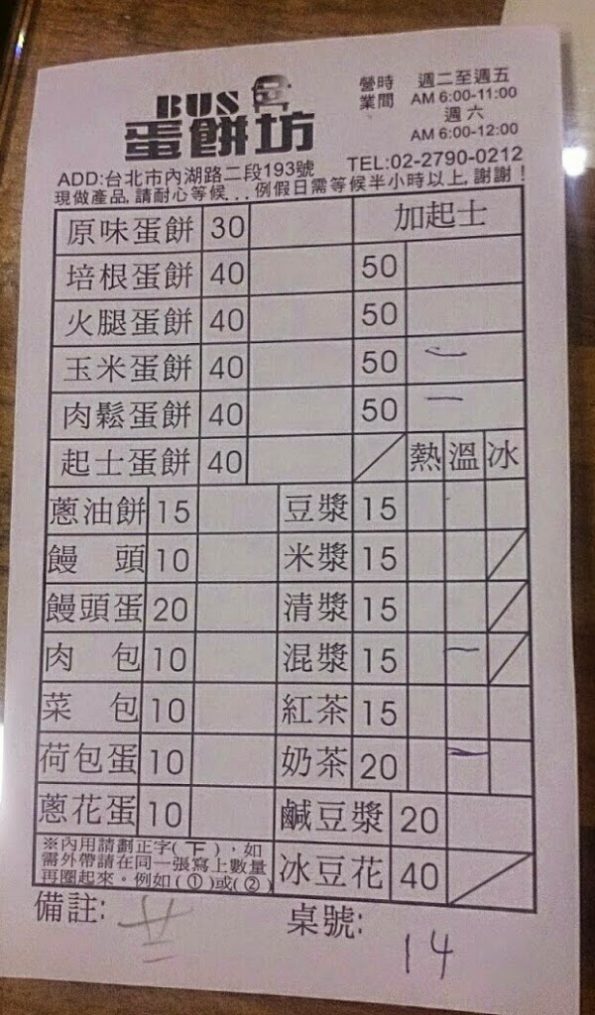 BUS
蛋餅坊
營業時間 週二至週五
AM 6:00-11:00
週六
AM 6:00-12:00
ADD:台北市內湖路二段193號 TEL:02-2790-0212
現做產品,請耐心等候...例假日需等候半小時以上,謝謝!
原味蛋餅 30 加起士
培根蛋餅 40 50
火腿蛋餅 40 50
玉米蛋餅 40 50 一
肉鬆蛋餅 40 50 一
起士蛋餅 40 熱 溫 冰
蔥油餅 15 豆漿 15
饅頭 10 米漿 15
饅頭蛋 20 清漿 15
肉包 10 混漿 15 一
菜包 10 紅茶 15
荷包蛋 10 奶茶 20 一
蔥花蛋 10 鹹豆漿 20
※內用請劃正字(下),如
需外帶請在同一張寫上數量
再圈起來。例如(①)或(②)
冰豆花 40
備註: 桌號: 14